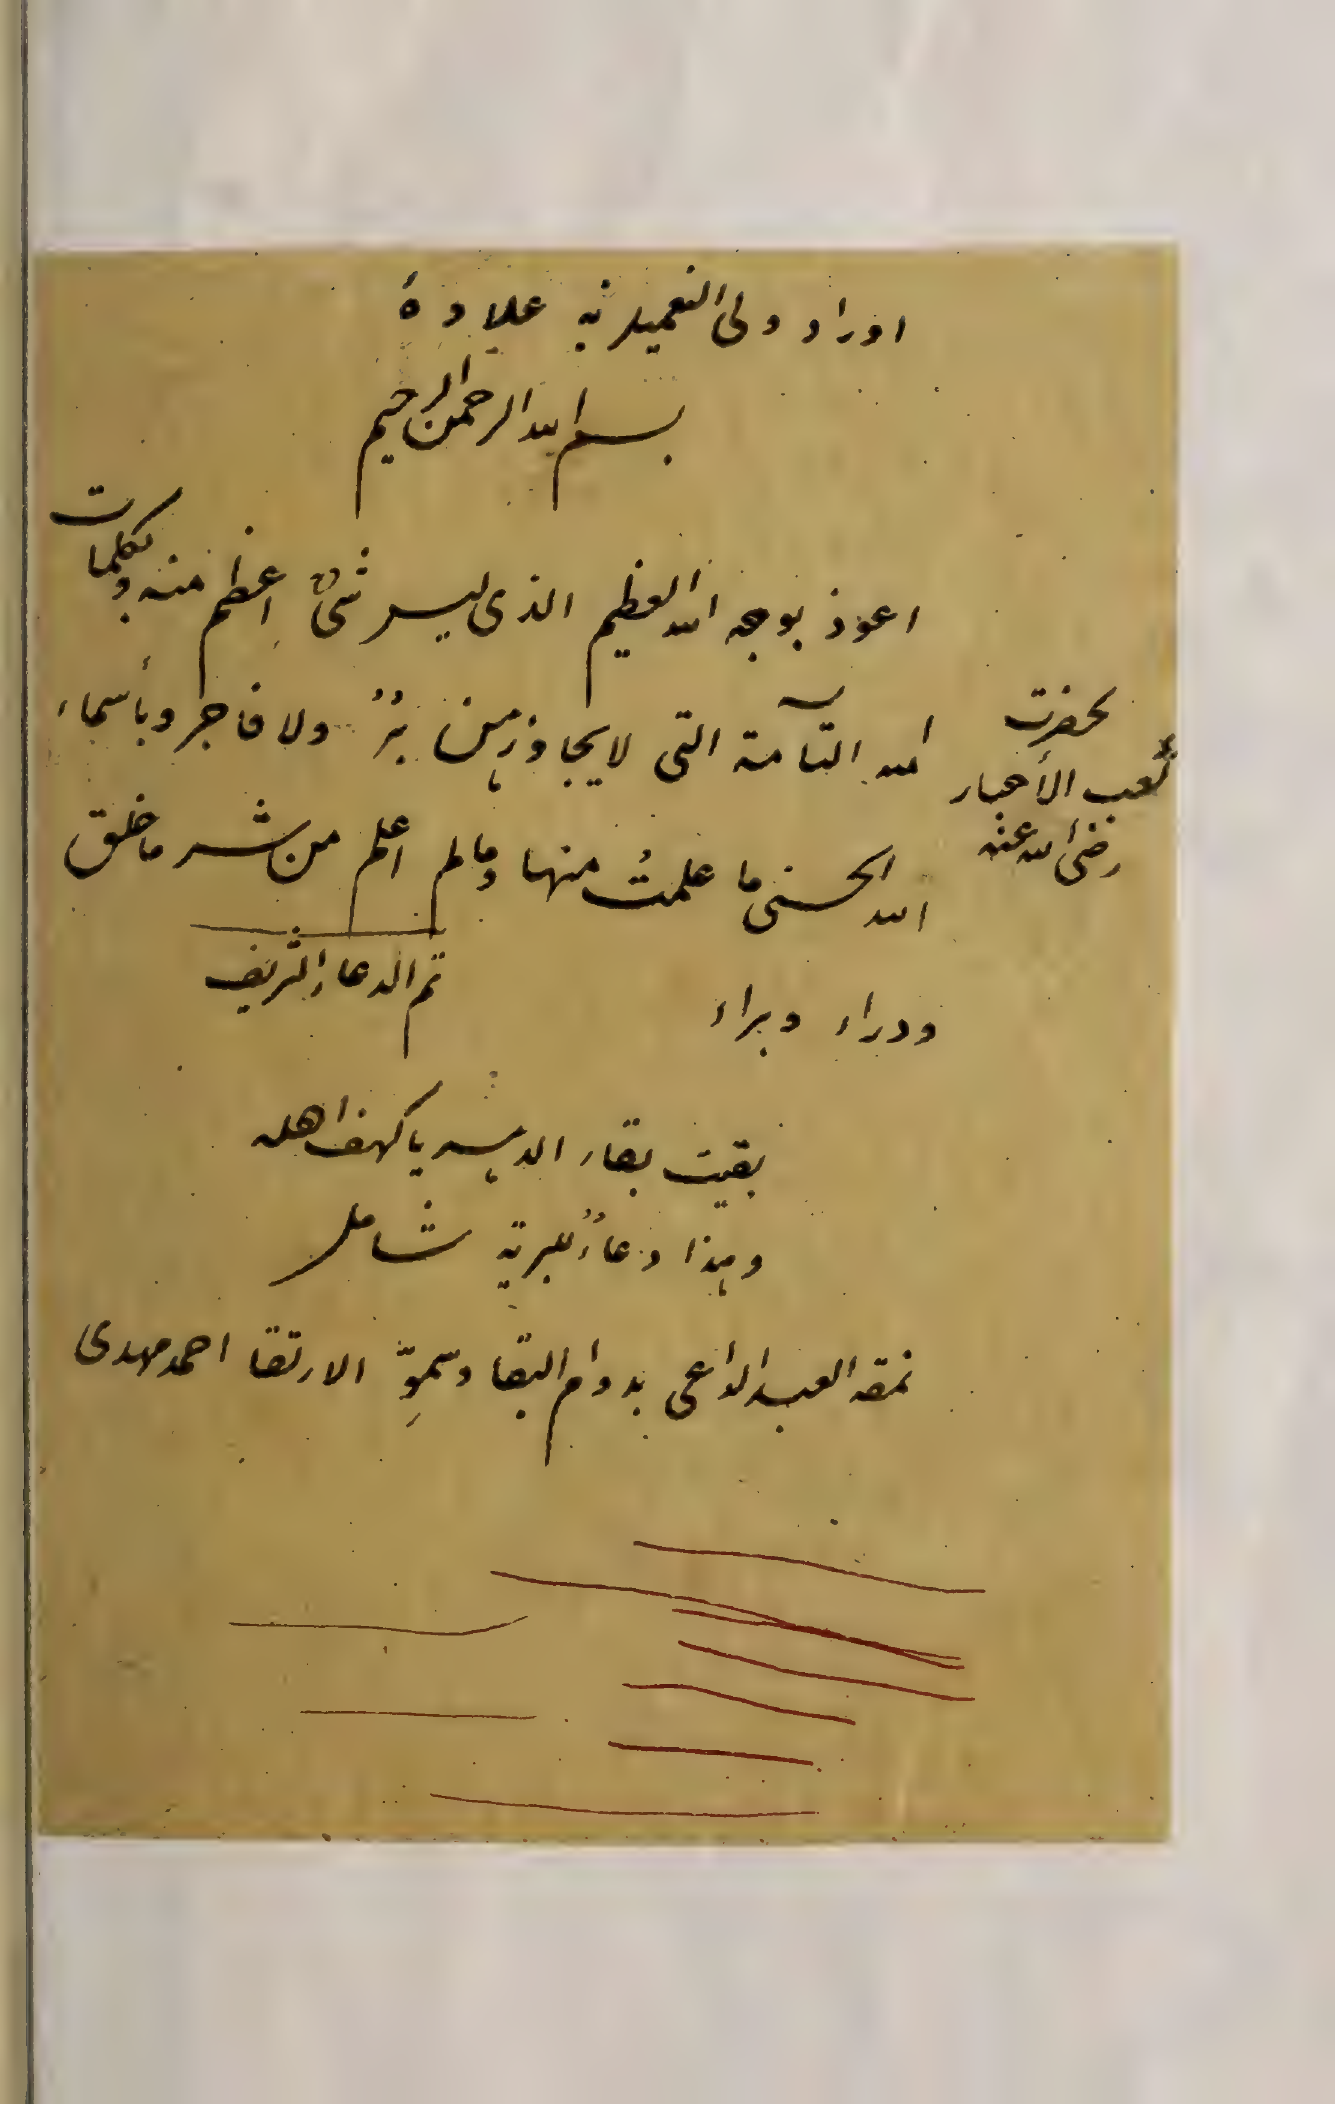 اوراد ولى النعميلرينه علاوة
بسم الله الرحمن الرحيم
اعوذ بوجه الله العظيم الذى ليس شئ اعظم منه وبكلمات
الله التآمة التى لا يجاوزهن برٌ ولا فاجر وبأسماء
الله الحسنى ما علمتُ منها وما لم اعلم من شر ما خلق
وذراء وبراء
تم الدعاء الشريف
لحضرت
كعب الأحبار
رضى الله عنه
بقيت بقاء الدهر يا كهف اهله
وهذا دعاءٌ للبرية شامل
نمقه العبد الداعى بدوام البقا وسموّ الارتقا احمد مهدى